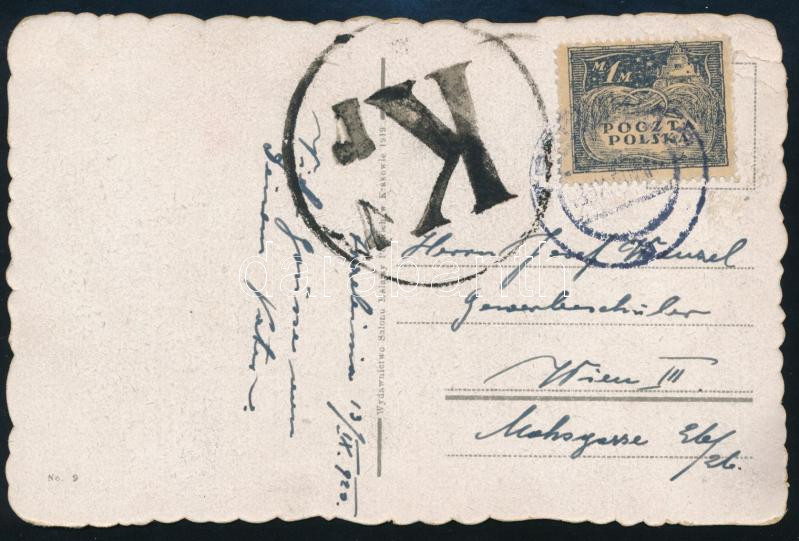 M 1 M
POCZTA
POLSKA
K
Trzebinia 13/IX. 920.
Viele Grüsse von
Deinem Vater.
Herrn Josef Wenzel
Gewerbeschüler
Wien III.
Mohsgasse
26.
Wydawnictwo Salonu Malarzy w Krakowie 1919
No. 9
darabanth